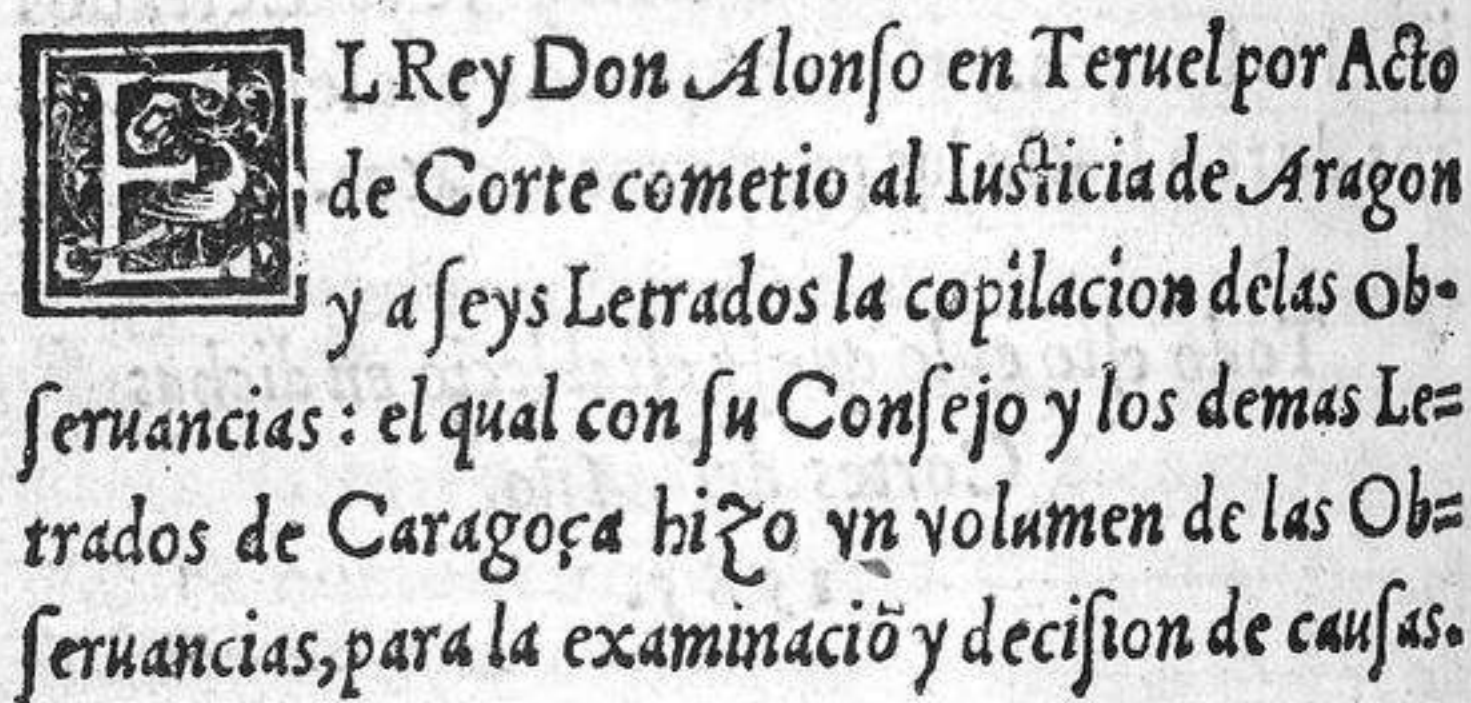 EL Rey Don Alonſo en Teruel por Acto
de Corte cometio al Iuſticia de Aragon
y a ſeys Letrados la copilacion delas Ob-
ſeruancias: el qual con ſu Conſejo y los demas Le=
trados de Caragoça hizo vn volumen de las Ob=
ſeruancias, para la examinaciõ y deciſion de cauſas.